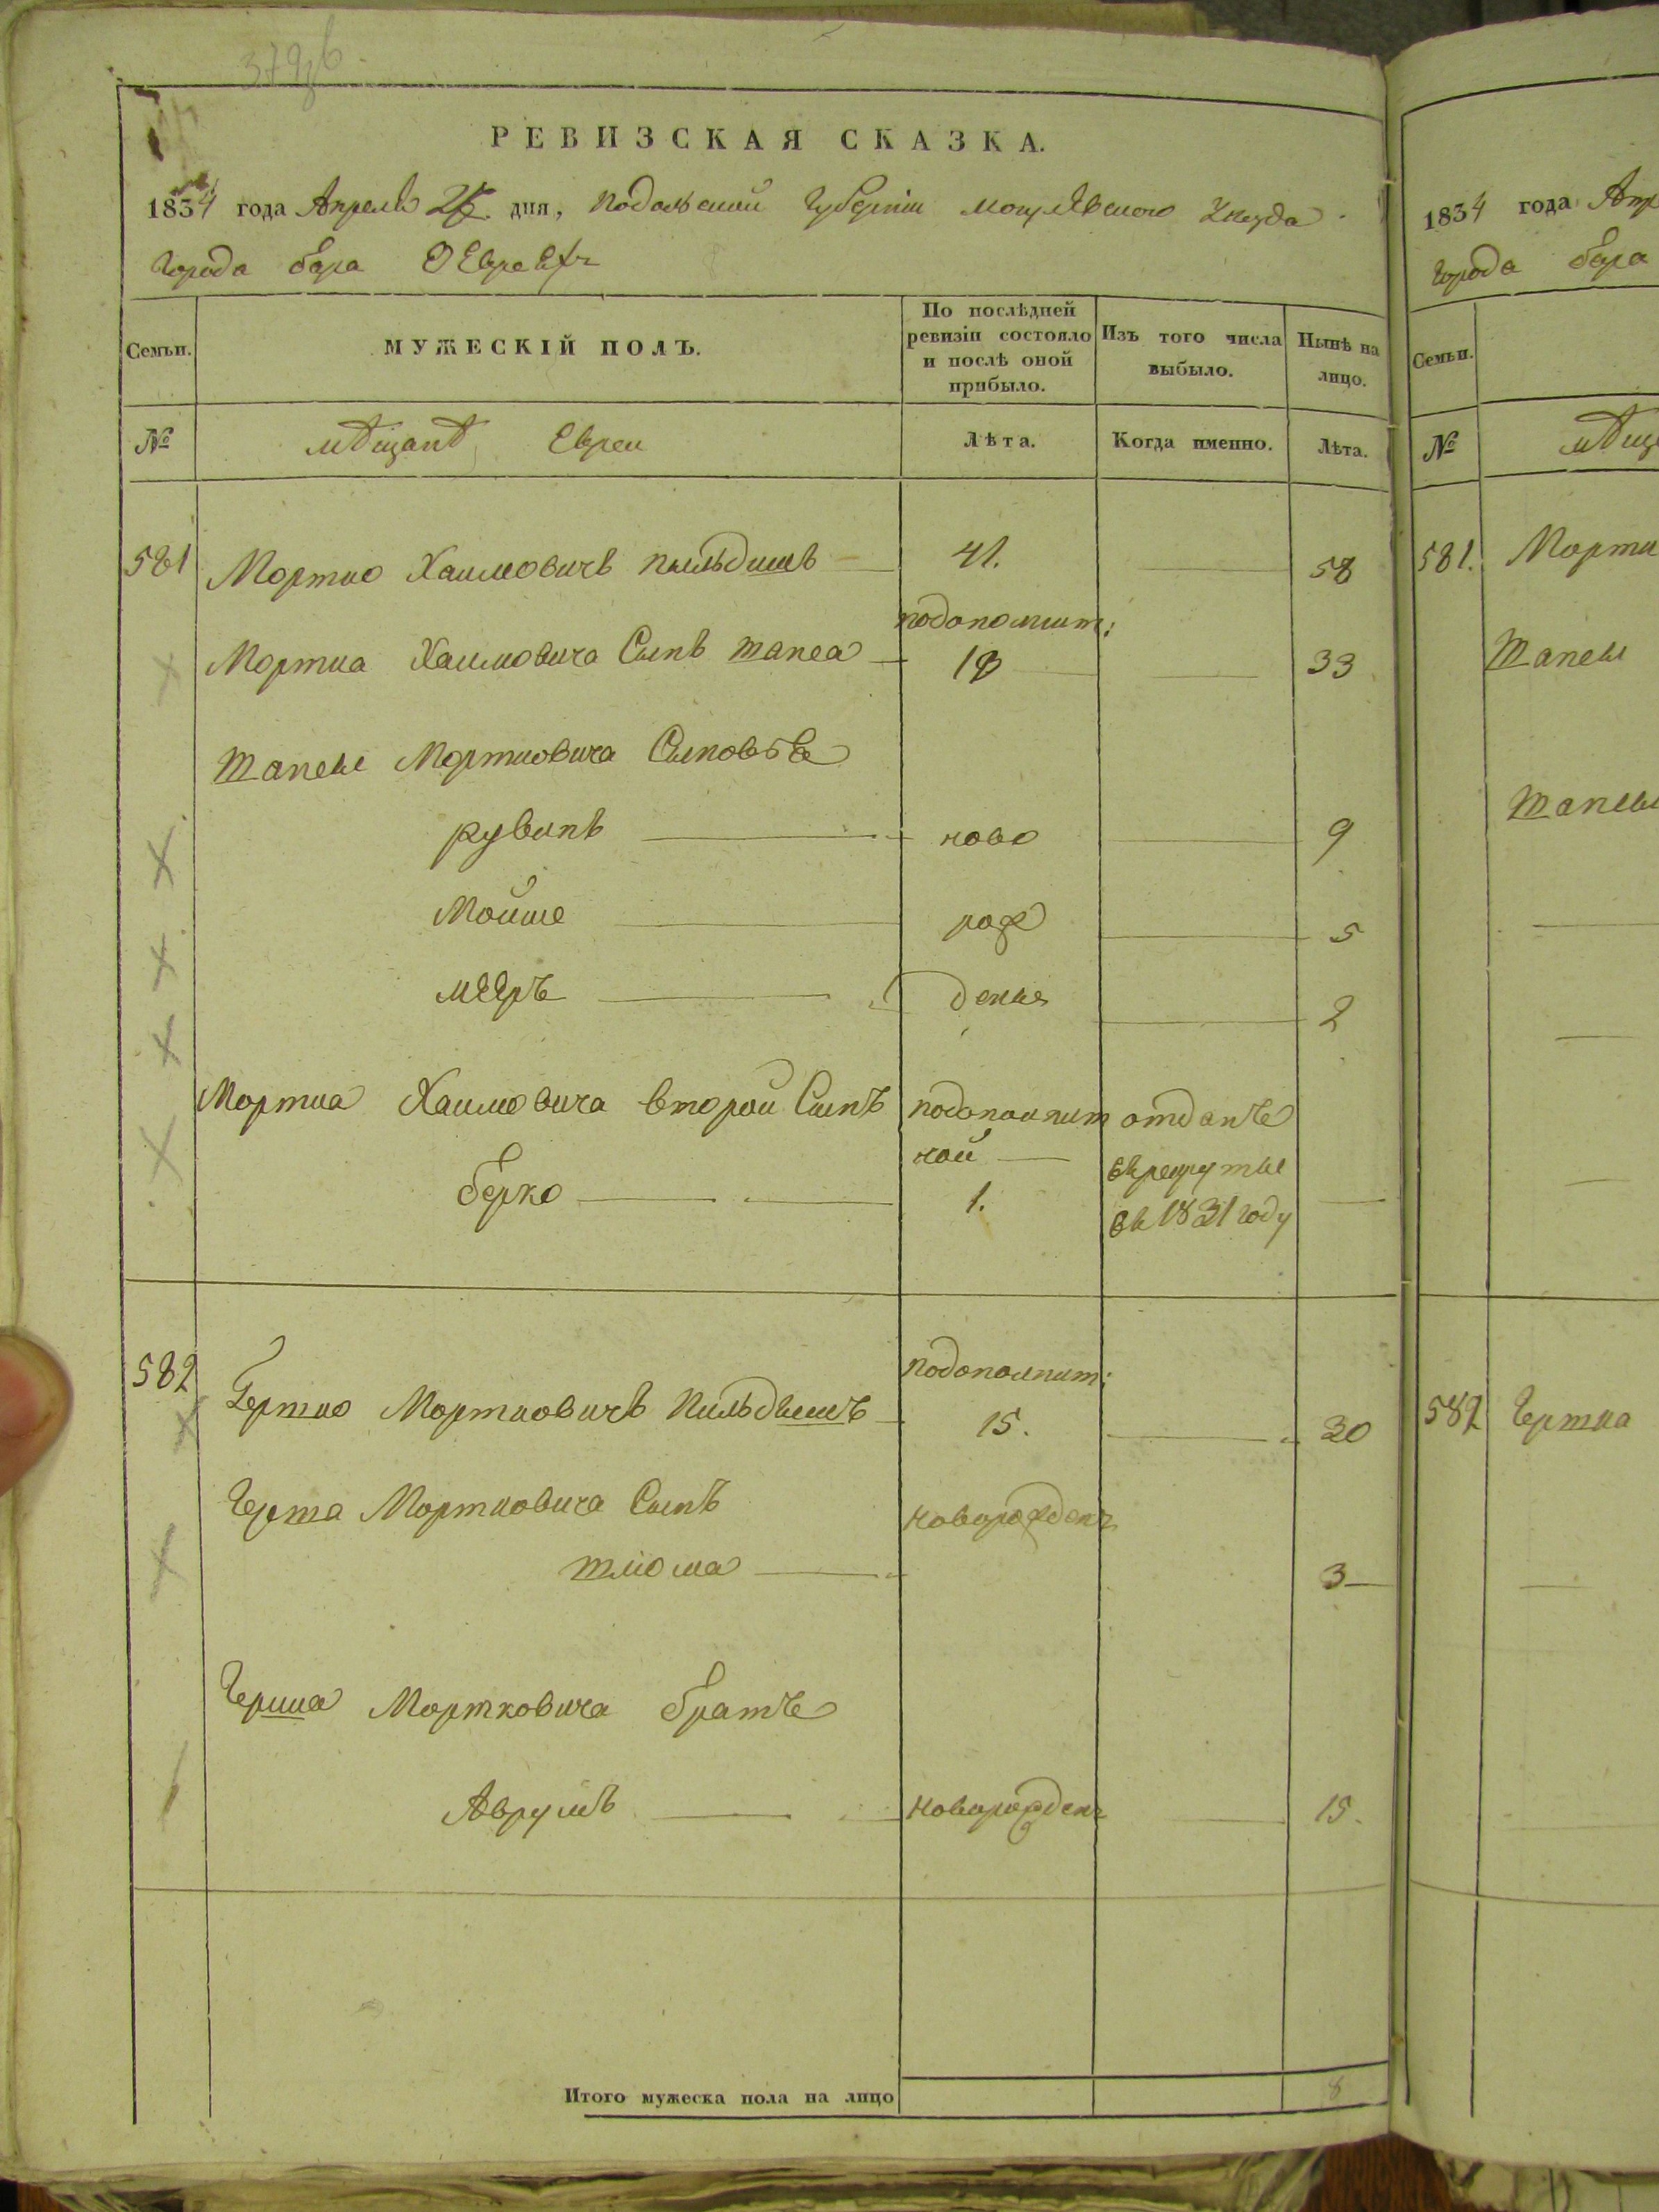 РЕВИЗСКАЯ СКАЗКА.
1834 года Апреля 25. дня, Подольской Губерніи Могилевского Уезда
Города бара О Евреяхъ
Семьи. МУЖЕСКІЙ ПОЛЪ. По послѣдней ревизіи состояло и послѣ оной прибыло. Изъ того числа выбыло. Нынѣ на лицо.
№ мѣщанѣ Евреи Лѣта. Когда именно. Лѣта.
581 Мортко Хаимовичъ Пильдишъ 41. 58
подополнит:
Мортка Хаимовича Сынъ Шапса 18 33
Шапсы Мортковича Сыновья
рувинъ ново 9
Мойше рож 5
мееръ денья 2
Мортка Хаимовича второй Сынъ подополнит отданъ
ной в рекруты
берко 1. въ 1831 году
582 подополнит:
Гершко Мортковичъ Пильдишъ 15. 30
Герша Мортковича Сынъ новорожденъ
Шлiома 3
Герша Мортковича братъ
Аврумъ новорожденъ 15.
Итого мужеска пола на лицо 8
1834 года Апр
Города бара
Семьи.
№ мѣщ
581. Мортк
Шапсы
Шапсы
582 Гершка